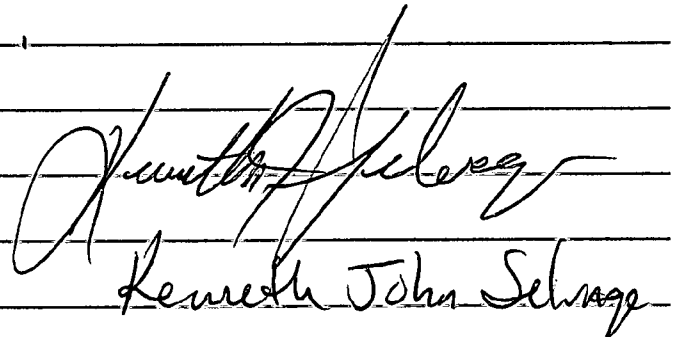 Kenneth J Selvage
Kenneth John Selvage